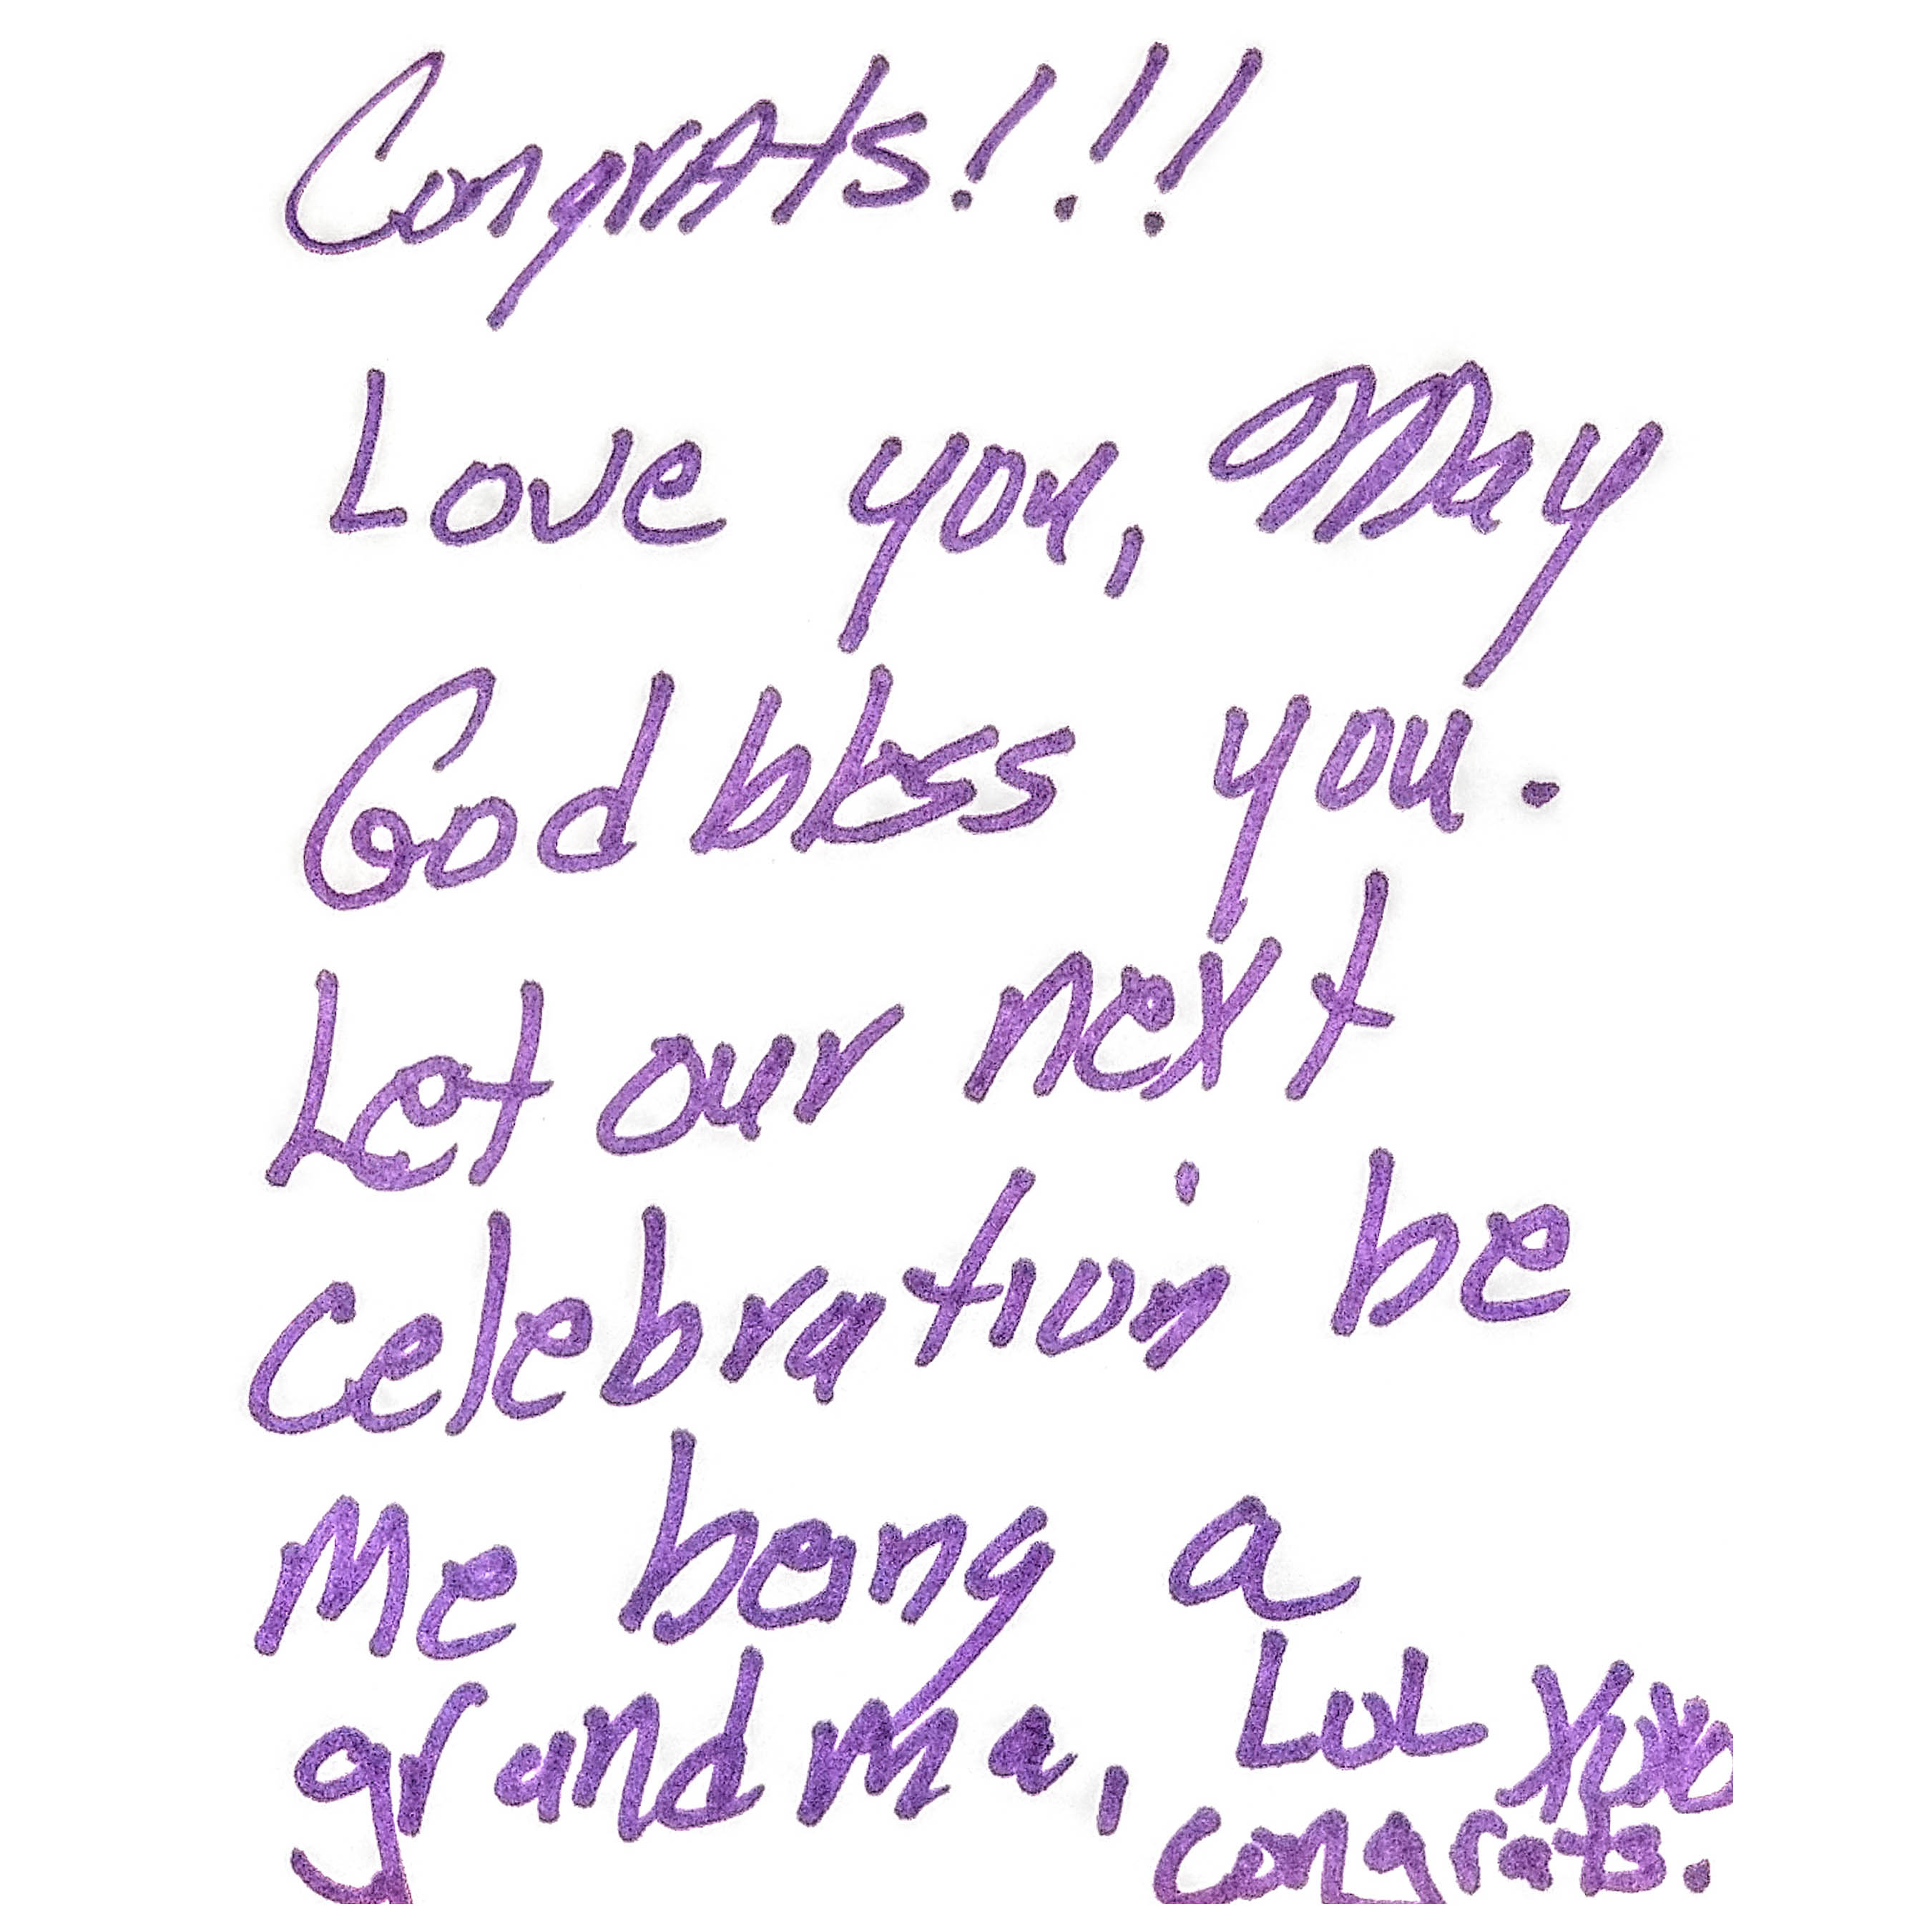 Congrats!!!
Love you, May
God bless you.
Let our next
celebration be
Me being a
grandma, LoL XOXO
congrats.